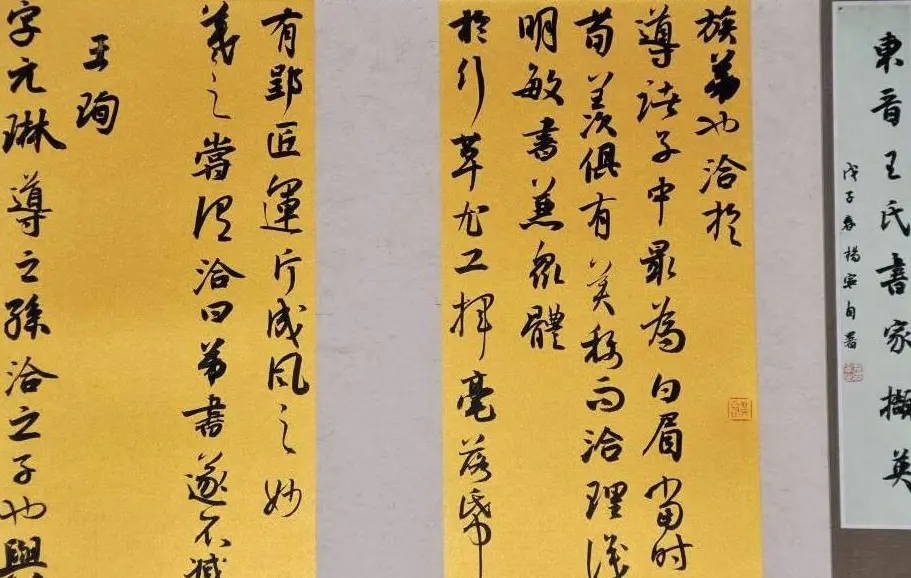 東晉王氏書家擷英
戊子春楊自署
族弟也洽於
導諸子中最為白眉當時
荀羨俱有美稱而洽理識
明敏書兼衆體
於行草尤工揮毫落帋
有郢匠運斤成風之妙
羲之嘗謂洽曰弟書遂不減
王珣
字元琳導之孫洽之子也與